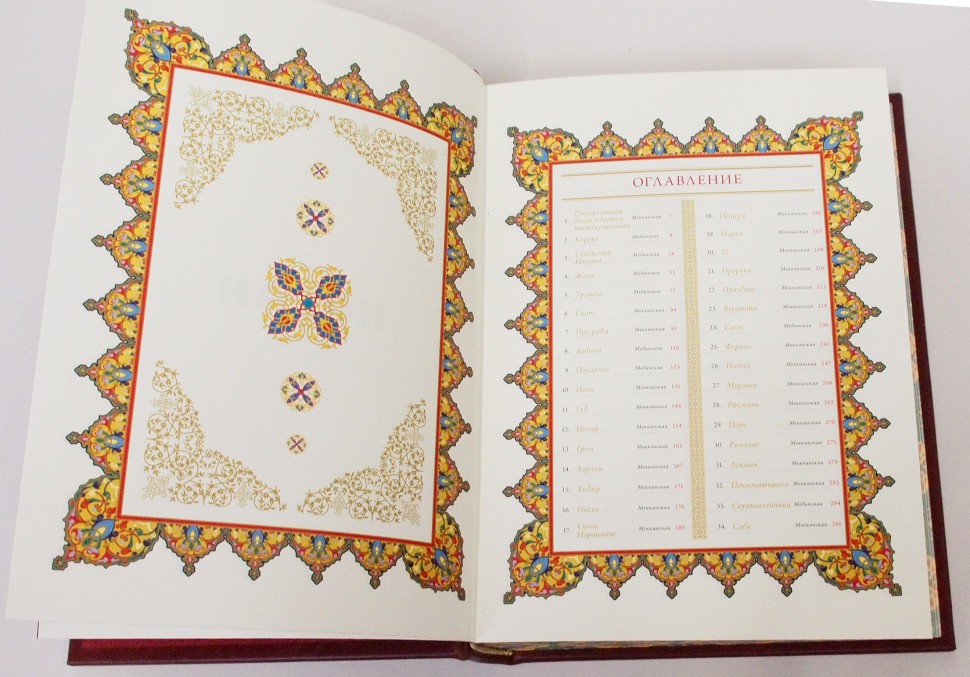 ОГЛАВЛЕНИЕ
1. Открывающая Мекканская 7
2. Корова Мединская 8
3. Семейство Имрана Мединская
4. Жёны Мединская 53
5. Трапеза Мединская 71
6. Скот Мекканская 84
7. Преграды Мекканская 99
8. Добыча Мединская 116
9. Покаяние Мединская 123
10. Иона Мекканская 135
11. Гуд Мекканская 144
12. Иосиф Мекканская 154
13. Гром Мекканская 163
14. Авраам Мекканская 167
15. Хиджр Мекканская 171
16. Пчёлы Мекканская 176
17. Сыны Израилевы Мекканская 186
18. Пещера Мекканская
19. Мария Мекканская 203
20. Мекканская 208
21. Пророки Мекканская 216
22. Праздник Мекканская 223
23. Верующие Мекканская 229
24. Свет Мединская 236
25. Форкан Мекканская 242
26. Поэты Мекканская 247
27. Муравей Мекканская 256
28. Рассказы Мекканская 262
29. Паук Мекканская 270
30. Римляне Мекканская 275
31. Локман Мекканская 279
32. Поклоняющиеся Мекканская 282
33. Соумышленники Мединская 284
34. Саба Мекканская 291